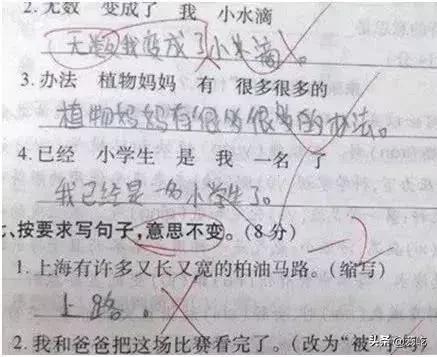 2. 无数 变成了 我 小水滴
无数我变成了小水滴。
3. 办法 植物妈妈 有 很多很多的
植物妈妈有很多很多的办法。
4. 已经 小学生 是 我 一名 了
我已经是一名小学生了。
七、按要求写句子,意思不变。(8分)
1. 上海有许多又长又宽的柏油马路。(缩写)
上路。
2. 我和爸爸把这场比赛看完了。(改为“被”字句)
头条